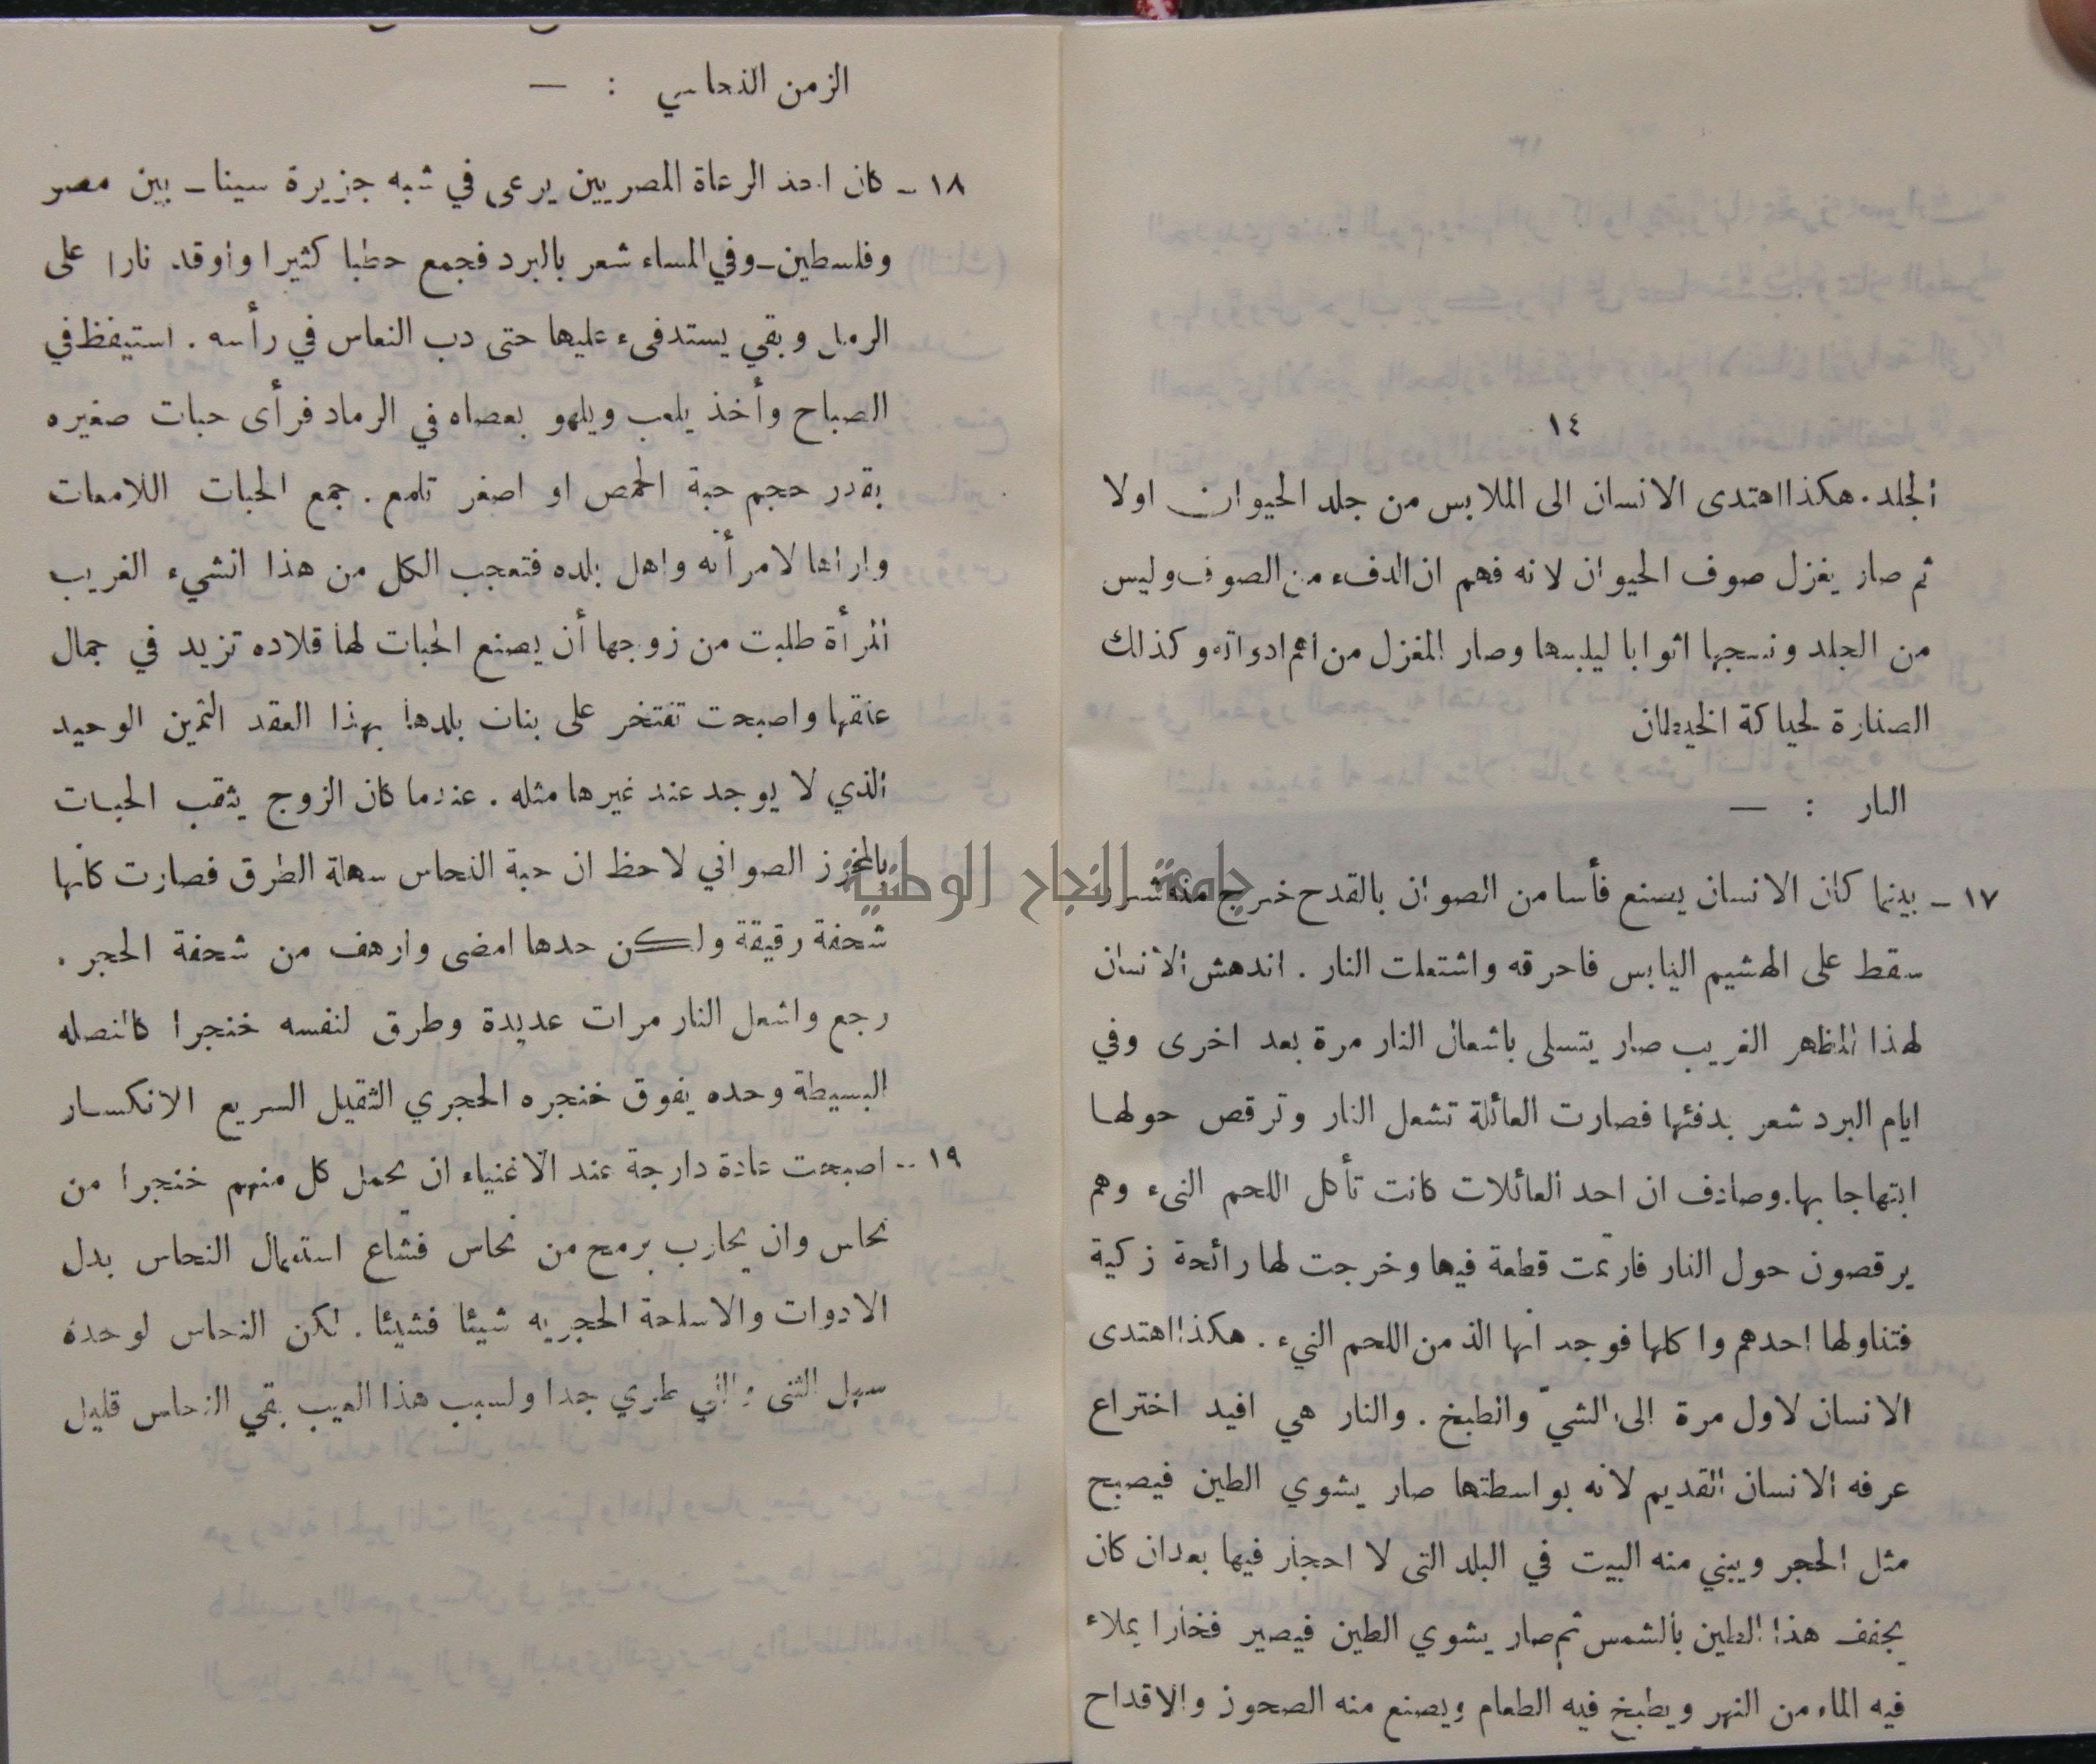 ١٤
الجلد. هكذا اهتدى الانسان الى الملابس من جلد الحيوان اولا
ثم صار يغزل صوف الحيوان لانه فهم ان الدفء من الصوف وليس
من الجلد ونسجها اثوابا ليلبسها وصار المغزل من اهم ادواته وكذلك
الصنارة لحياكة الخيطان
النار : —
١٧ – بينما كان الانسان يصنع فأسا من الصوان بالقدح خرج منه شرر
سقط على الهشيم اليابس فاحرقه واشتعلت النار . اندهش الانسان
لهذا المظهر الغريب صار يتسلى باشعال النار مرة بعد اخرى وفي
ايام البرد شعر بدفئها فصارت العائلة تشعل النار وترقص حولها
ابتهاجا بها. وصادف ان احد العائلات كانت تأكل اللحم النىء وهم
يرقصون حول النار فارتمت قطعة فيها وخرجت لها رائحة زكية
فتناولها احدهم واكلها فوجد انها الذ من اللحم النيء . هكذا اهتدى
الانسان لاول مرة الى الشيّ والطبخ . والنار هي افيد اختراع
عرفه الانسان القديم لانه بواسطتها صار يشوي الطين فيصبح
مثل الحجر ويبني منه البيت في البلد التى لا احجار فيها بعد ان كان
يجفف هذا الطين بالشمس ثم صار يشوي الطين فيصير فخارا يملاء
فيه الماء من النهر ويطبخ فيه الطعام ويصنع منه الصحوز والاقداح
الزمن النحاسي : —
١٨ – كان احد الرعاة المصريين يرعى في شبه جزيرة سينا – بين مصر
وفلسطين – وفي المساء شعر بالبرد فجمع حطبا كثيرا واوقد نارا على
الرمل وبقي يستدفىء عليها حتى دب النعاس في رأسه . استيقظ في
الصباح وأخذ يلعب ويلهو بعصاه في الرماد فرأى حبات صغيره
بقدر حجم حبة الحمص او اصغر تلمع . جمع الحبات اللامعات
واراها لامرأته واهل بلده فتعجب الكل من هذا الشيء الغريب
المرأة طلبت من زوجها أن يصنع الحبات لها قلاده تزيد في جمال
عنقها واصبحت تفتخر على بنات بلدها بهذا العقد الثمين الوحيد
الذي لا يوجد عند غيرها مثله . عندما كان الزوج يثقب الحبات
بالمخرز الصواني لاحظ ان حبة النحاس سهلة الطرق فصارت كأنها
شحفة رقيقة ولكن حدها امضى وارهف من شحفة الحجر .
رجع واشعل النار مرات عديدة وطرق لنفسه خنجرا كالنصله
البسيطة وحده يفوق خنجره الحجري الثقيل السريع الانكسار
١٩ – اصبحت عادة دارجة عند الاغنياء ان يحمل كل منهم خنجرا من
نحاس وان يحارب برمح من نحاس فشاع استعمال النحاس بدل
الادوات والاسلحة الحجريه شيئا فشيئا . لكن النحاس لوحده
سهل الثنى طري جدا ولسبب هذا العيب بقي النحاس قليل
جامعة النجاح الوطنية